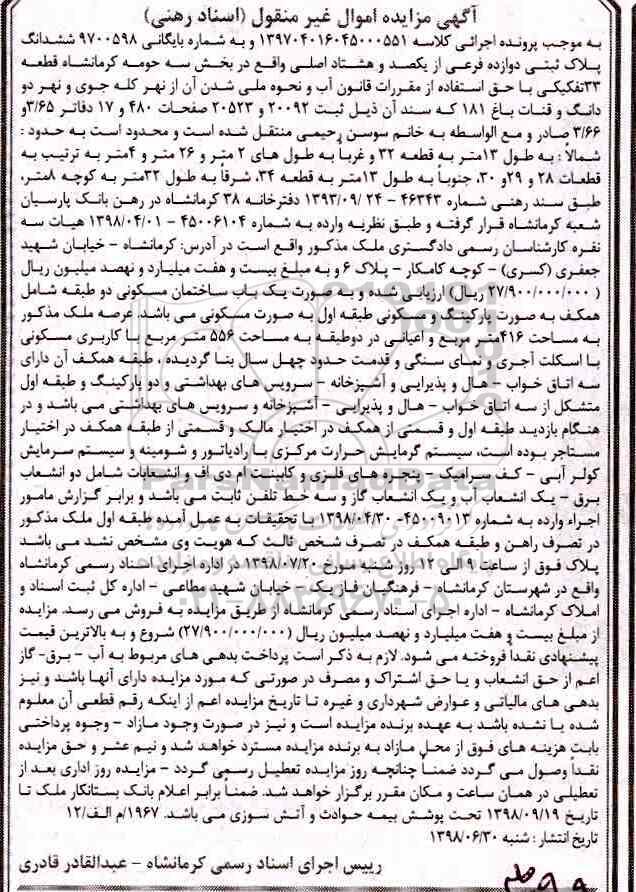 آگهی مزایده اموال غیر منقول (اسناد رهنی)
به موجب پرونده اجرائی کلاسه ۱۳۹۷۰۴۰۱۶۰۴۵۰۰۰۵۵۱ و به شماره بایگانی ۹۷۰۰۵۹۸ ششدانگ
پلاک ثبتی دوازده فرعی از یکصد و هشتاد اصلی واقع در بخش سه حومه کرمانشاه قطعه
۳۳تفکیکی با حق استفاده از مقررات قانون آب و نحوه ملی شدن آن از نهر کله جوی و نهر دو
دانگ و قنات باغ ۱۸۱ که سند آن ذیل ثبت ۲۰۰۹۲ و ۲۰۵۲۳ صفحات ۴۸۰ و ۱۷ دفاتر ۳/۶۵و
۳/۶۶ صادر و مع الواسطه به خانم سوسن رحیمی منتقل شده است و محدود است به حدود :
شمالاً : به طول ۱۳متر به قطعه ۳۲ و غرباً به طول های ۲ متر و ۲۶ متر و ۴متر به ترتیب به
قطعات ۲۸ و ۲۹و ۳۰، جنوباً به طول ۱۳متر به قطعه ۳۴، شرقاً به طول ۳۲متر به کوچه ۸متر،
طبق سند رهنی شماره ۴۶۳۴۳ - ۲۴ /۱۳۹۳/۰۹ دفترخانه ۳۸ کرمانشاه در رهن بانک پارسیان
شعبه کرمانشاه قرار گرفته و طبق نظریه وارده به شماره ۴۵۰۰۶۱۰۴ - ۱۳۹۸/۰۴/۰۱ هیات سه
نفره کارشناسان رسمی دادگستری ملک مذکور واقع است در آدرس: کرمانشاه - خیابان شهید
جعفری (کسری) - کوچه کامکار - پلاک ۶ و به مبلغ بیست و هفت میلیارد و نهصد میلیون ریال
( ۲۷/۹۰۰/۰۰۰/۰۰۰ ریال) ارزیابی شده و به صورت یک باب ساختمان مسکونی دو طبقه شامل
همکف به صورت پارکینگ و مسکونی طبقه اول به صورت مسکونی می باشد. عرصه ملک مذکور
به مساحت ۴۱۶متر مربع و اعیانی در دوطبقه به مساحت ۵۵۶ متر مربع با کاربری مسکونی
با اسکلت آجری و نمای سنگی و قدمت حدود چهل سال بنا گردیده ، طبقه همکف آن دارای
سه اتاق خواب - هال و پذیرایی و آشپزخانه - سرویس های بهداشتی و دو پارکینگ و طبقه اول
متشکل از سه اتاق خواب - هال و پذیرایی - آشپزخانه و سرویس های بهداشتی می باشد و در
هنگام بازدید طبقه اول و قسمتی از همکف در اختیار مالک و قسمتی از طبقه همکف در اختیار
مستاجر بوده است، سیستم گرمایش حرارت مرکزی با رادیاتور و شومینه و سیستم سرمایش
کولر آبی - کف سرامیک - پنجره های فلزی و کابینت ام دی اف و انشعابات شامل دو انشعاب
برق - یک انشعاب آب و یک انشعاب گاز و سه خط تلفن ثابت می باشد و برابر گزارش مامور
اجراء وارده به شماره ۴۵۰۰۹۰۱۳- ۱۳۹۸/۰۴/۳۰ با تحقیقات به عمل آمده طبقه اول ملک مذکور
در تصرف راهن و طبقه همکف در تصرف شخص ثالث که هویت وی مشخص نشد می باشد
پلاک فوق از ساعت ۹ الی ۱۲ روز شنبه مورخ ۱۳۹۸/۰۷/۲۰ در اداره اجرای اسناد رسمی کرمانشاه
واقع در شهرستان کرمانشاه - فرهنگیان فاز یک - خیابان شهید مطاعی - اداره کل ثبت اسناد و
املاک کرمانشاه - اداره اجرای اسناد رسمی کرمانشاه از طریق مزایده به فروش می رسد. مزایده
از مبلغ بیست و هفت میلیارد و نهصد میلیون ریال (۲۷/۹۰۰/۰۰۰/۰۰۰) شروع و به بالاترین قیمت
پیشنهادی نقداً فروخته می شود. لازم به ذکر است پرداخت بدهی های مربوط به آب - برق- گاز
اعم از حق انشعاب و یا حق اشتراک و مصرف در صورتی که مورد مزایده دارای آنها باشد و نیز
بدهی های مالیاتی و عوارض شهرداری و غیره تا تاریخ مزایده اعم از اینکه رقم قطعی آن معلوم
شده یا نشده باشد به عهده برنده مزایده است و نیز در صورت وجود مازاد - وجوه پرداختی
بابت هزینه های فوق از محل مازاد به برنده مزایده مسترد خواهد شد و نیم عشر و حق مزایده
نقداً وصول می گردد ضمناً چنانچه روز مزایده تعطیل رسمی گردد - مزایده روز اداری بعد از
تعطیلی در همان ساعت و مکان مقرر برگزار خواهد شد. ضمناً برابر اعلام بانک بستانکار ملک تا
تاریخ ۱۳۹۸/۰۹/۱۹ تحت پوشش بیمه حوادث و آتش سوزی می باشد. ۱۹۶۷/م الف/۱۲
تاریخ انتشار : شنبه ۱۳۹۸/۰۶/۳۰
رییس اجرای اسناد رسمی کرمانشاه - عبدالقادر قادری